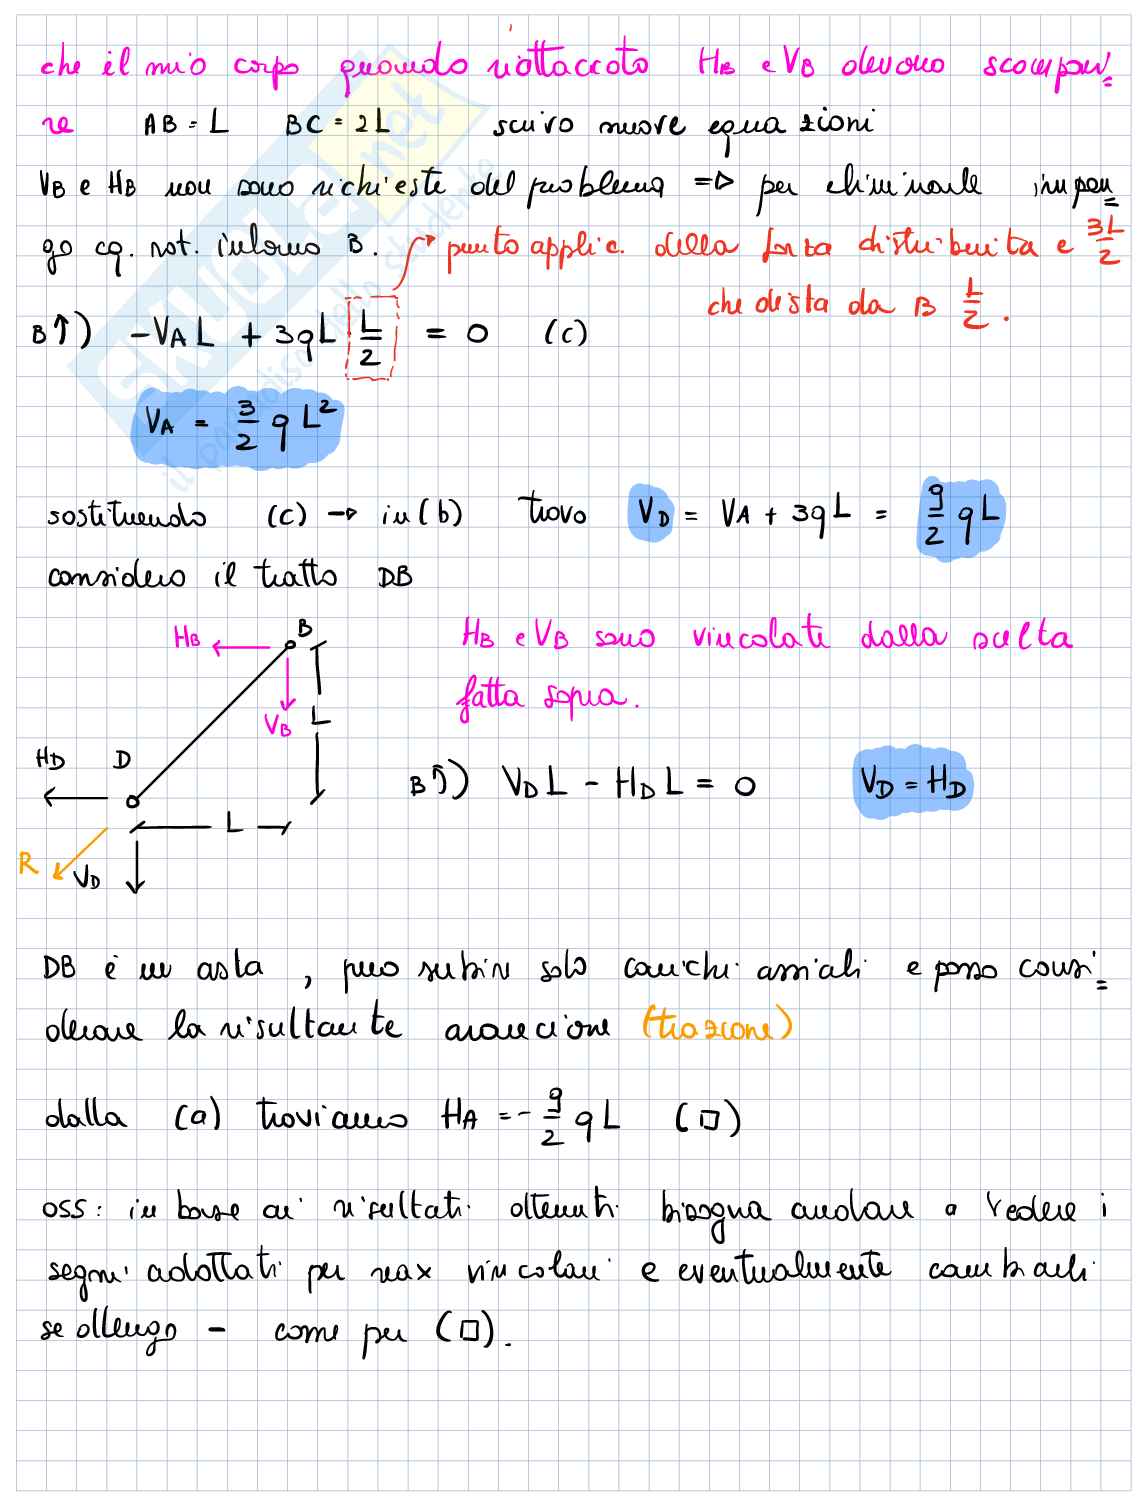 che il mio corpo quando riattaccato HB e VB devono scompari=
re AB = L BC = 2L scrivo nuove equazioni
VB e HB non sono richieste dal problema => per eliminarle impon
go eq. rot. intorno B. punto applic. della forza distribuita e 3L/2
che dista da B L/2.
B↑) -VA L + 3qL L/2 = 0 (c)
VA = 3/2 q L²
sostituendo (c) → in (b) trovo VD = VA + 3qL = 9/2 qL
considero il tratto DB
HB B HB e VB sono vincolate dalla scelta
fatta sopra.
VB L
HD D B↑) VD L - HD L = 0 VD = HD
L
R VD
DB è un asta, può subire solo carichi assiali e posso consi=
derare la risultante a trazione (trazione)
dalla (a) troviamo HA = - 9/2 qL (□)
oss: in base ai risultati ottenuti bisogna andare a vedere i
segni adottati per reax vincolari e eventualmente cambiarli
se ottengo - come per (□).
SKUOLA.net
il paradiso dello studente